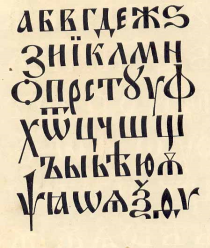 АБВГДЕЖЅ
ЗИЇКЛМН
ѺПРСТꙊУФ
ХѾЦЧШЩ
ЪЫЬѢЮѪ
ѰꙖѠѦѮѲѴ